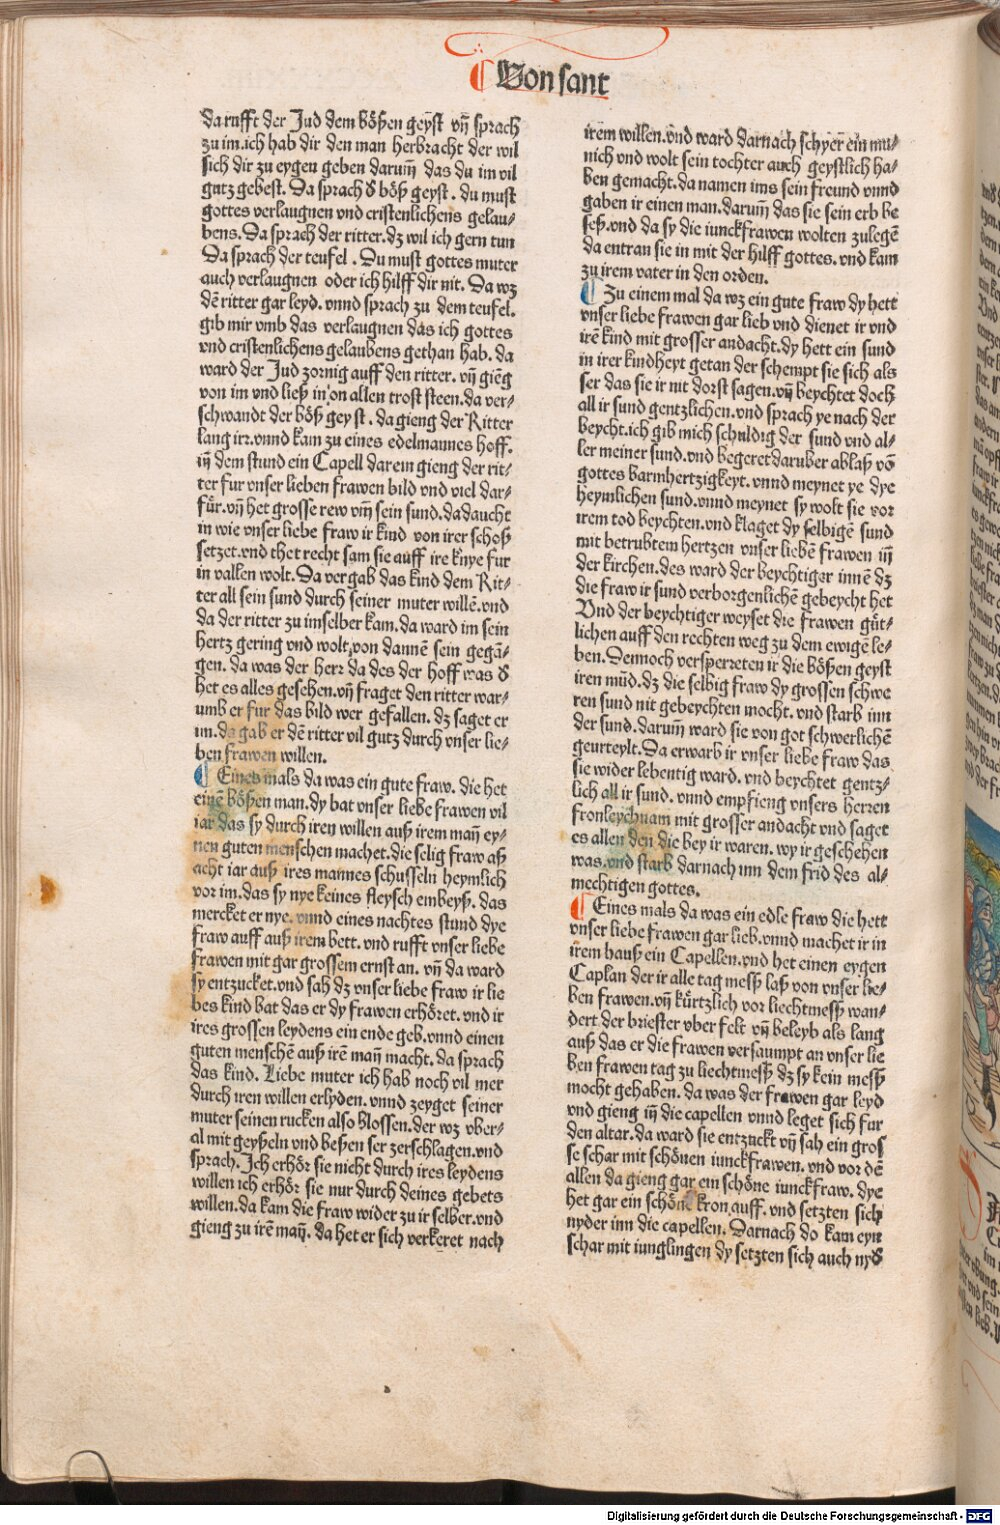 Von sant
da rufft der Jud dem bößen geyst vñ sprach
zu im.ich hab dir den man herbracht der wil
sich dir zu eygen geben darumm̄ das du im vil
gutz gebest. Da sprach d̕ böß geyst. du must
gottes verlaugnen vnd cristenlichens gelau⸗
bens. Da sprach der ritter.dz wil ich gern tun
Da sprach der teufel. Du must gottes muter
auch verlaugnen oder ich hilff dir nit. Da wz
dē ritter gar leyd. vnnd sprach zu dem teufel.
gib mir vmb das verlaugnen das ich gottes
vnd cristenlichens gelaubens gethan hab. da
ward der Jud zornig auff den ritter. vñ gieng
von im vnd ließ in on allen trost steen.da ver⸗
schwandt der böß geyst. da gieng der Ritter
lang irr.vnnd kam zu eines edelmannes hoff.
iñ dem stund ein Capell darein gieng der rit⸗
ter fur vnser lieben frawen bild vnd viel dar⸗
für.vñ het grosse rew vm̄ sein sund.da daucht
in wie vnser liebe fraw ir kind von irer schoß
setzet.vnd thet recht sam sie auff ire knye fur
in vallen wolt. Da vergab das kind dem Rit⸗
ter all sein sund durch seiner muter willē.vnd
da der ritter zu imselber kam.da ward im sein
hertz gering vnd wolt von dannē sein gegā⸗
gen. da was der herr da des der hoff was d̕
het es alles gesehen.vñ fraget den ritter war⸗
umb er fur das bild wer gefallen. dz saget er
im.da gab er dē ritter vil gutz durch vnser lie⸗
ben frawen willen.
¶ Eines mals da was ein gute fraw. die het
einē bößen man.dy bat vnser liebe frawen vil
iar das sy durch iren willen auß irem mañ ey⸗
nen guten menschen machet.die selig fraw aß
acht iar auß ires mannes schusseln heymlich
vor im.das sy nye keines fleysch embeyß. das
mercket er nye. vnnd eines nachtes stund dye
fraw auff auß irem bett. vnd rufft vnser liebe
frawen mit gar grossem ernst an. vñ da ward
sy entzucket.vnd sah dz vnser liebe fraw ir lie
bes kind bat das er dy frawen erhöret. vnd ir
ires grossen leydens ein ende geb.vnnd einen
guten menschē auß irē mañ macht. da sprach
das kind. Liebe muter ich hab noch vil mer
durch iren willen erlyden. vnnd zeyget seiner
muter seinen rucken also blossen.der wz vber⸗
al mit geyßeln vnd beßen ser zerschlagen.vnd
sprach. Ich erhör sie nicht durch ires leydens
willen ich erhör sie nur durch deines gebets
willen.da kam die fraw wider zu ir selber.vnd
gieng zu irē mañ. da het er sich verkeret nach
irem willen.vnd ward darnach schyer ein mu⸗
nich vnd wolt sein tochter auch geystlich ha⸗
ben gemacht.da namen ims sein freund vnnd
gaben ir einen man.darumm̄ das sie sein erb be
seß.vnd da sy die iunckfrawen wolten zulegē
da entran sie in mit der hilff gottes. vnd kam
zu irem vater in den orden.
¶ Zu einem mal da wz ein gute fraw dy hett
vnser liebe frawen gar lieb vnd dienet ir vnd
irē kind mit grosser andacht.dy hett ein sund
in irer kindheyt getan der schempt sie sich als
ser das sie ir nit dorst sagen.vñ beychtet doch
all ir sund gentzlichen.vnd sprach ye nach der
beycht.ich gib mich schuldig der sund vnd al⸗
ler meiner sund.vnd begeret daruber ablaß vō
gottes barmhertzigkeyt. vnnd meynet ye dye
heymlichen sund.vnnd meynet sy wolt sie vor
irem tod beychten.vnd klaget dy selbigē sund
mit betrubtem hertzen vnser liebē frawen iñ
der kirchen.des ward der beychtiger innē dz
die fraw ir sund verborgenlichē gebeycht het
Vnd der beychtiger weyset die frawen güt⸗
lichen auff den rechten weg zu dem ewigē le⸗
ben. Dennoch versperreten ir die bößen geyst
iren mūd.dz die selbig fraw dy grossen schwe
ren sund nit gebeychten mocht. vnd starb inn
der sund. darumm̄ ward sie von got schwerlichē
geurteylt. Da erwarb ir vnser liebe fraw das
sie wider lebentig ward. vnd beychtet gentz⸗
lich all ir sund. vnnd empfieng vnsers herren
fronleychnam mit grosser andacht vnd saget
es allen den die bey ir waren. wy ir geschehen
was.vnd starb darnach inn dem frid des al⸗
mechtigen gottes.
¶ Eines mals da was ein edle fraw die hett
vnser liebe frawen gar lieb.vnnd machet ir in
irem hauß ein Capellen.vnd het einen eygen
Caplan der ir alle tag meß laß von vnser lie⸗
ben frawen.vñ kürtzlich vor liechtmeß wan⸗
dert der briester vber felt vñ beleyb als lang
auß das er die frawen versaumpt an vnser lie
ben frawen tag zu liechtmeß dz sy kein meß
mocht gehaben. da was der frawen gar leyd
vnd gieng iñ die capellen vnnd leget sich fur
den altar.da ward sie entzuckt vñ sah ein gros
se schar mit schönen iunckfrawen. vnd vor dē
allen da gieng gar ein schöne iunckfraw. dye
het gar ein schöne kron auff. vnd setzten sich
nyder inn die capellen. Darnach do kam eyn
schar mit iunglingen dy setzten sich auch nyd̕
Digitalisierung gefördert durch die Deutsche Forschungsgemeinschaft - DFG